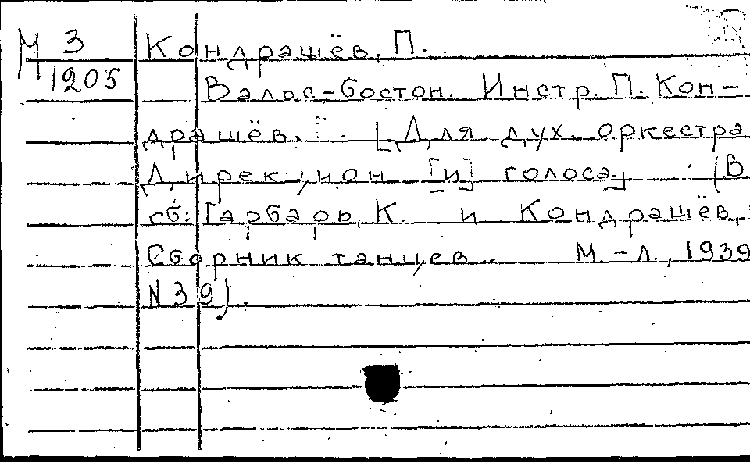 М 3 Кондрашёв, П.
1205 Вальс-бостон. Инстр. П. Кон-
драшёв. [Для дух. оркестра
Дирекцион [и] голоса] (В
сб: Гарбарь, К. и Кондрашёв,
Сборник танцев. М.-Л., 1939
N39).